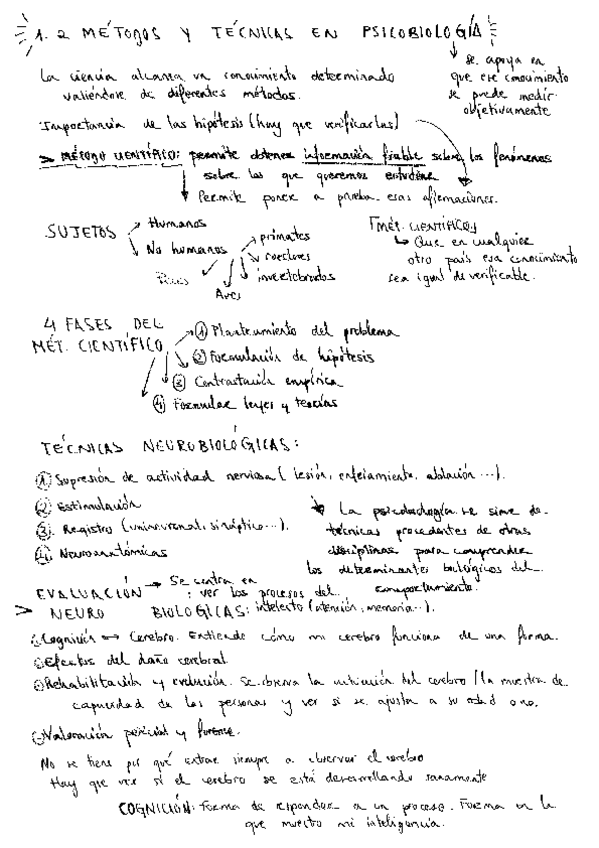 1.2 MÉTODOS Y TÉCNICAS EN PSICOBIOLOGÍA
se apoya en
que ese conocimiento
se puede medir
objetivamente
La ciencia alcanza un conocimiento determinado
valiéndose de diferentes métodos.
Importancia de las hipótesis (hay que verificarlas)
> MÉTODO CIENTÍFICO: permite obtener información fiable sobre los fenómenos
sobre los que queremos estudiar
Permite poner a prueba esas afirmaciones.
SUJETOS → Humanos
→ No humanos → primates
→ roedores
→ invertebrados
Peces
Aves
[MÉT. CIENTÍFICO]
↳ Que en cualquier
otro país ese conocimiento
sea igual de verificable.
4 FASES DEL
MÉT. CIENTÍFICO
→ ① Planteamiento del problema
② Formulación de hipótesis
③ Contrastación empírica
④ Formular leyes y teorías
TÉCNICAS NEUROBIOLÓGICAS:
① Supresión de actividad nerviosa (lesión, enfriamiento, ablación...).
② Estimulación
③ Registro (unineuronal, sináptico...).
④ Neuroanatómicas
La psicobiología se sirve de
técnicas procedentes de otras
disciplinas para comprender
los determinantes biológicos del
comportamiento.
EVALUACIÓN → Se centra en
: ver los procesos del
> NEURO BIOLÓGICAS: intelecto (atención, memoria...).
Cognición → Cerebro. Entiende cómo mi cerebro funciona de una forma.
Efectos del daño cerebral
Rehabilitación y evolución. Se observa la activación del cerebro / la muestra de
capacidad de las personas y ver si se ajusta a su edad o no.
Valoración pericial y forense.
No se tiene por qué entrar siempre a observar el cerebro
Hay que ver si el cerebro se está desarrollando sanamente
COGNICIÓN: Forma de responder a un proceso. Forma en la
que muestro mi inteligencia.